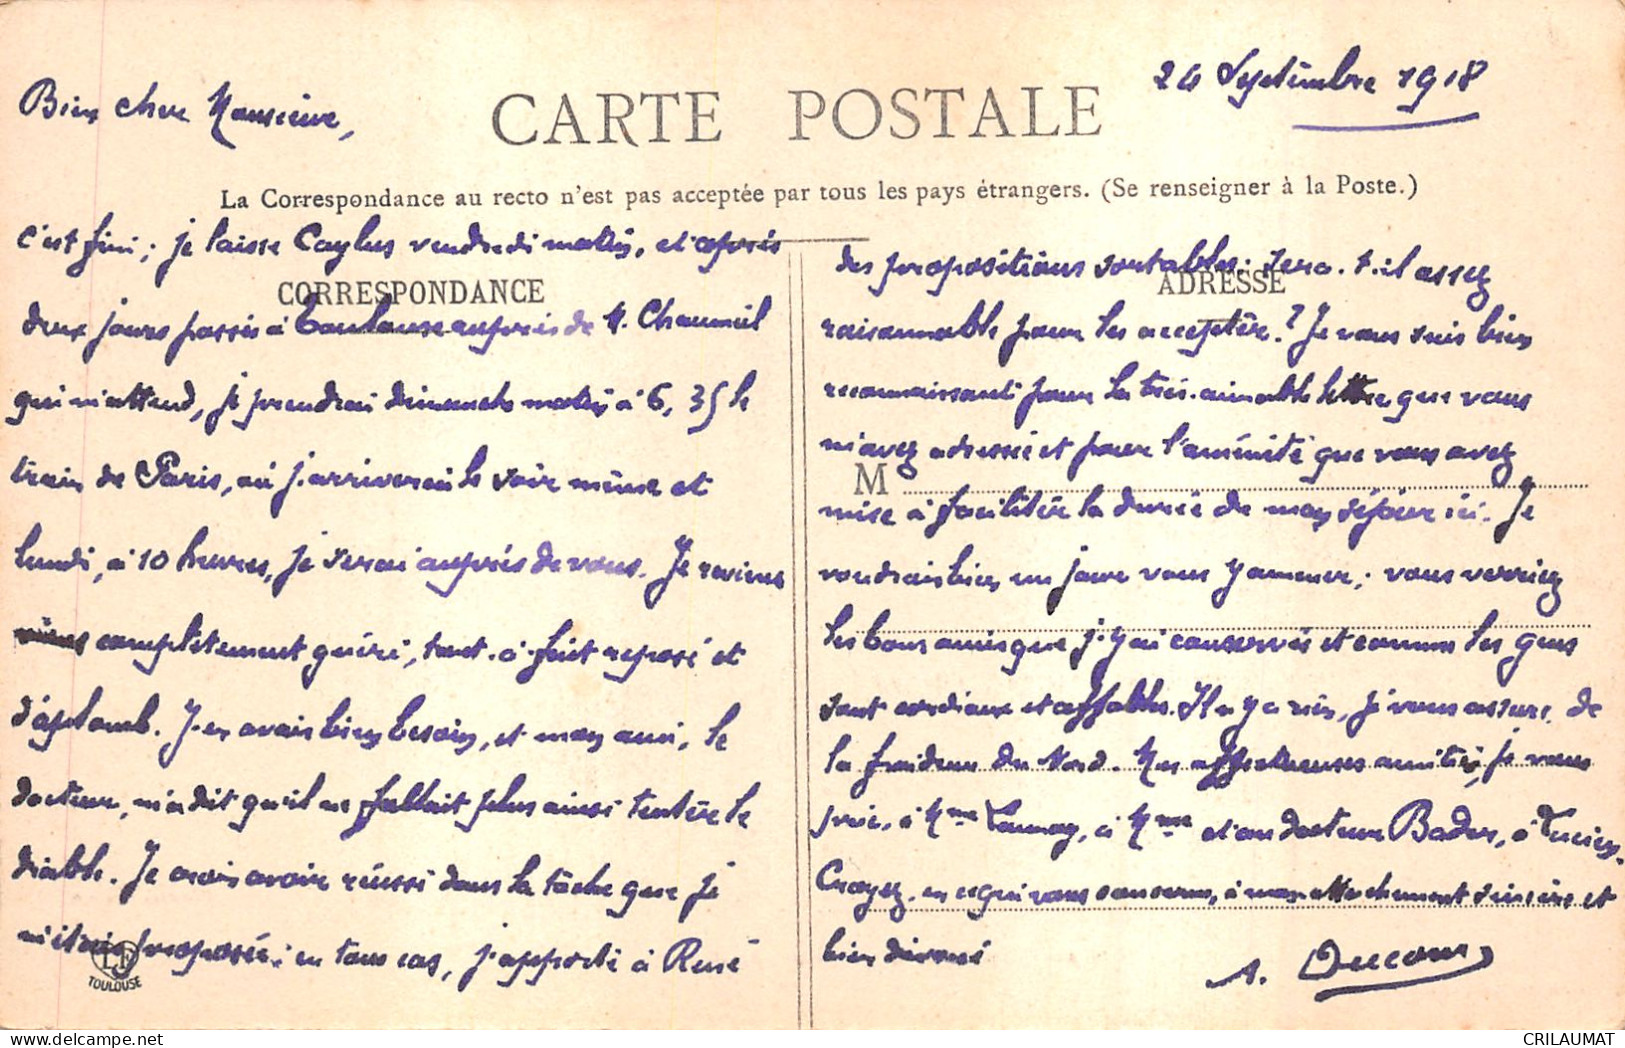 24 Septembre 1918
Bien cher Monsieur,
CARTE POSTALE
La Correspondance au recto n'est pas acceptée par tous les pays étrangers. (Se renseigner à la Poste.)
c'est fini ; je laisse Caylus vendredi matin, et après
CORRESPONDANCE
deux jours passés à Toulouse auprès de M. Chaumeil
qui m'attend, je prendrai dimanche matin à 6,35 le
train de Paris, où j'arriverai le soir même et
lundi, à 10 heures, je serai auprès de vous. Je reviens
complètement guéri, tout-à-fait reposé et
d'aplomb. J'en avais bien besoin, et mon ami, le
docteur, m'a dit qu'il ne fallait plus ainsi tenter le
diable. Je crois avoir réussi dans la tâche que je
m'étais proposée ; en tous cas, j'apporte à René
TOULOUSE
des propositions sortables. Sera-t-il assez
ADRESSE
raisonnable pour les accepter ? Je vous suis bien
reconnaissant pour la très-aimable lettre, que vous
m'avez adressée et pour l'aménité que vous avez
M
mise à faciliter la durée de mon séjour ici. Je
voudrais bien un jour vous y amener ; vous verriez
les bons amis que j'y ai conservés et comme les gens
sont cordiaux et affables. Il n'y a rien, je vous assure, de
la froideur du Nord. Mes affectueuses amitiés, je vous
prie, à Mme Launay, à Mme et au docteur Bader, à Lucien.
Croyez, en ce qui vous concerne, à mon attachement sincère et
bien dévoué
A. Ducour
CRILAUMAT